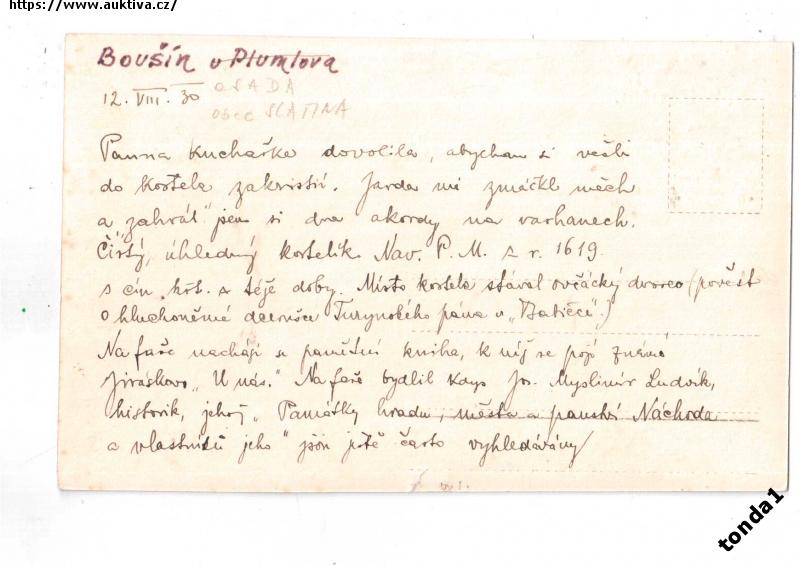 https://www.auktiva.cz/
Boušín u Plumlova
12. VIII. 30 OSADA
obec SLATINA
Panna kuchařka dovolila, abychom si vešli
do kostela zakristií. Jarda mi zmáčkl měch
a „zahrál" jsem si dva akordy na varhanech.
Čistý, úhledný kostelík Nav. P. M. z r. 1619.
s cín. křt. z téže doby. Místo kostela stával ovčácký dvorec (pověst
o hluchoněmé dcerušce Turynského pána v „Babičce".)
Na faře nachází se pamětní kniha, k níž se pojí známé
Jiráskovo „U nás." Na faře bydlil kdys Jos. Myslimír Ludvík,
historik, jehož „Památky hradu, města a panství Náchoda
a vlastníků jeho" jsou ještě často vyhledávány
tonda1